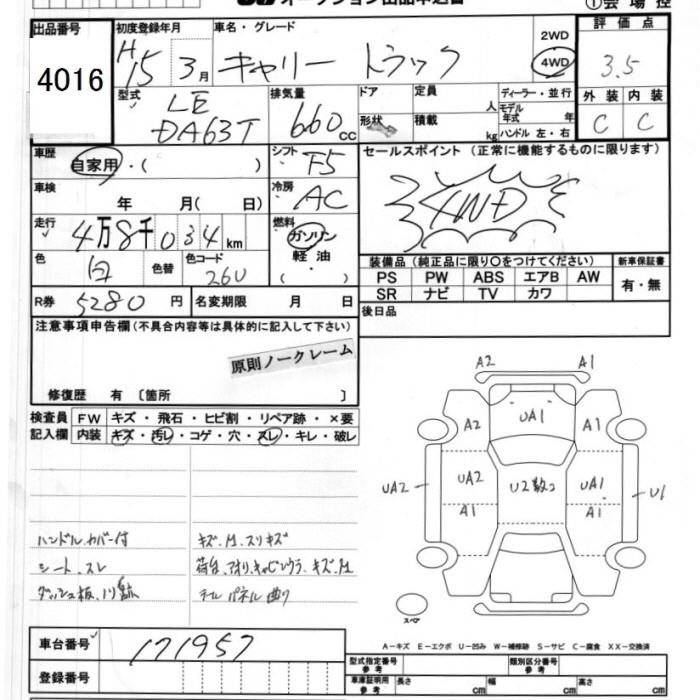 オークション出品申込書 ①会場控
出品番号 初度登録年月 車名・グレード 2WD 4WD 評価点
4016 H15 3月 キャリートラック 3.5
型式 LE DA63T 排気量 660cc ドア 形状 定員 人 積載 kg ディーラー・並行 モデル年式 年 ハンドル 左・右 外装 内装
C C
車歴 自家用・( ) シフト F5 セールスポイント(正常に機能するものに限ります)
車検 年 月( 日) 冷房 AC 4WD
走行 4万8千034km 燃料 ガソリン 軽油 ( ・ )
色 白 色替 色コード 26U 装備品(純正品に限り○をつけてください) 新車保証書
PS PW ABS エアB AW 有・無
SR ナビ TV カワ
R券 5280円 名変期限 月 日 後日品
注意事項申告欄(不具合内容等は具体的に記入して下さい)
原則ノークレーム
修復歴 有 〔箇所 〕
検査員 FW キズ・飛石・ヒビ割・リペア跡・×要
記入欄 内装 キズ・汚レ・コゲ・穴・スレ・キレ・破レ
ハンドルカバー付 キズ、凹、スリキズ
シート、スレ 荷台、アオリ、キャビンウラ、キズ、凹
テールパネル曲り
A2 A1
A2 UA1 A1
UA2 UA2 U2数コ UA1 U1
A1 A1
スペア
A−キズ E−エクボ U−凹み W−補修跡 S−サビ C−腐食 XX−交換済
車台番号 171957
型式指定番号 参考 類別区分番号 参考
登録番号 車庫証明用 参考 長さ cm 幅 cm 高さ cm